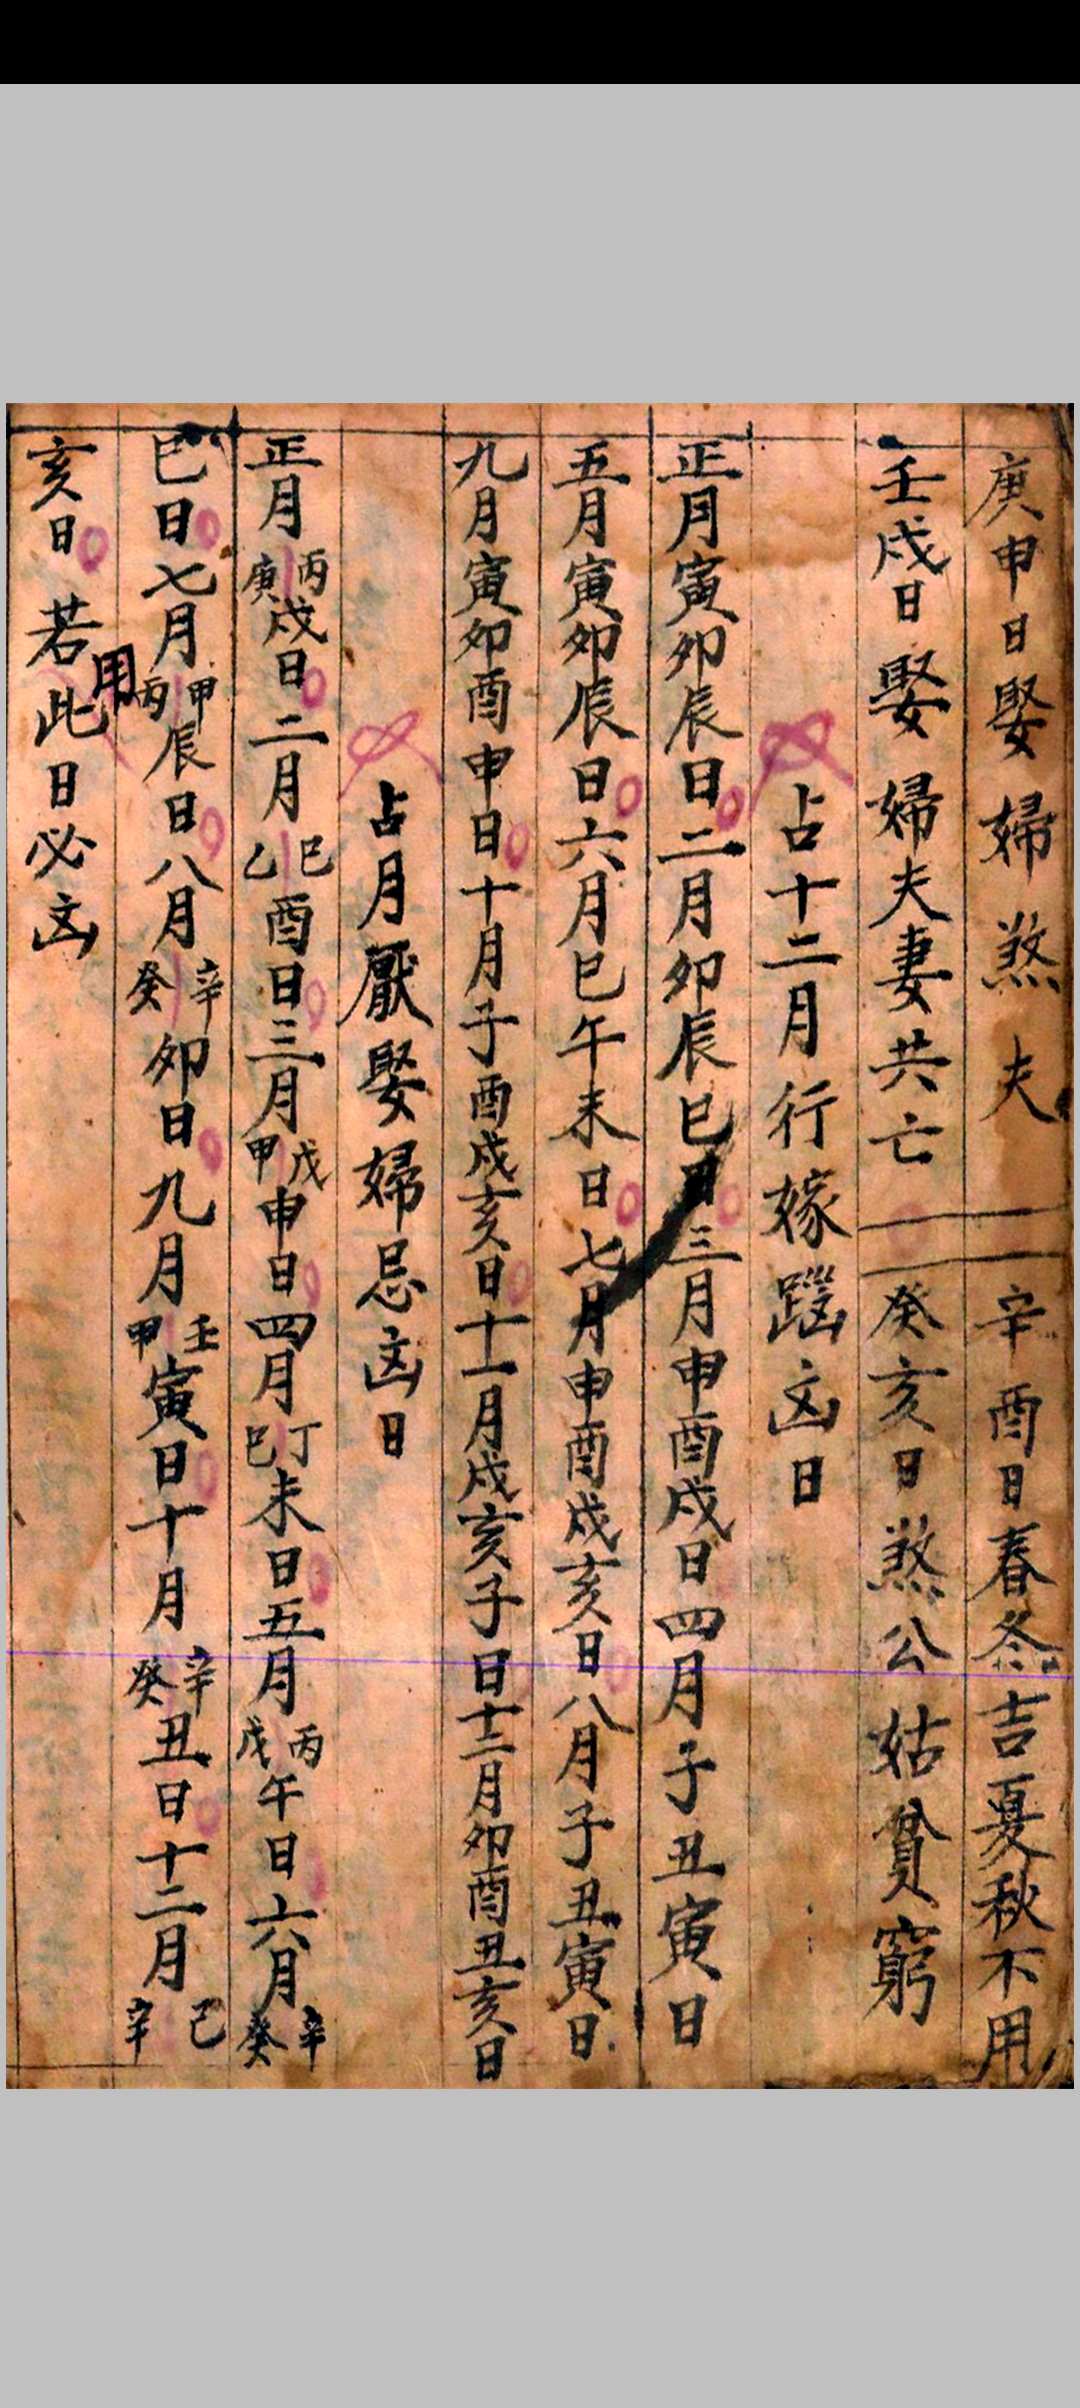 庚申日娶婦煞夫 辛酉日春冬吉夏秋不用
壬戌日娶婦夫妻共亡 癸亥日煞公姑貧窮
占十二月行嫁凶日
正月寅卯辰日二月卯辰巳日三月申酉戌日四月子丑寅日
五月寅卯辰日六月巳午未日七月申酉戌亥日八月子丑寅日
九月寅卯酉申日十月子酉戌亥日十一月戌亥子日十二月卯酉丑亥日
占月厭娶婦忌凶日
正月丙庚戌日二月巳乙酉日三月戊甲申日四月丁巳未日五月丙戊午日六月辛癸
巳日七月甲丙辰日八月辛癸卯日九月壬甲寅日十月辛癸丑日十二月己辛
亥日若用此日必凶